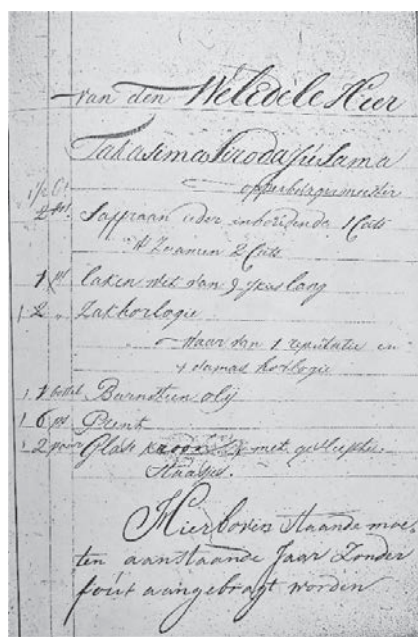 van den WelEdele Heer
Takasima Sirodaju Sama
opperburgemeester
2 Saffraan ieder inhoudende 1 Catt
te Zaamen 2 Catt
1 ps laken wit van 9 ikis lang
2 " Zakhorlogie
waar van 1 repitatie en
1 damas horlogie
1 bottel Barnsteen olij
6 ps Prent
2 paar Glase met gesleepte
Hier boven staande moe„
ten aanstaande Jaar Zonder
fout aangebragt worden